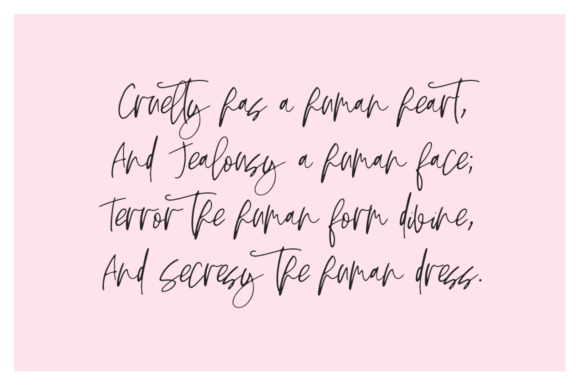 Cruelty has a human heart,
And Jealousy a human face;
Terror the human form divine,
And secresy the human dress.